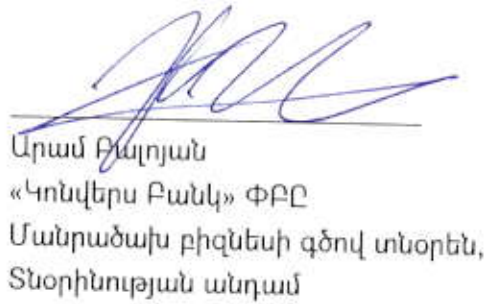 Արամ Բալոյան
«Կոնվերս Բանկ» ՓԲԸ
Մանրածախ բիզնեսի գծով տնօրեն,
Տնօրինության անդամ